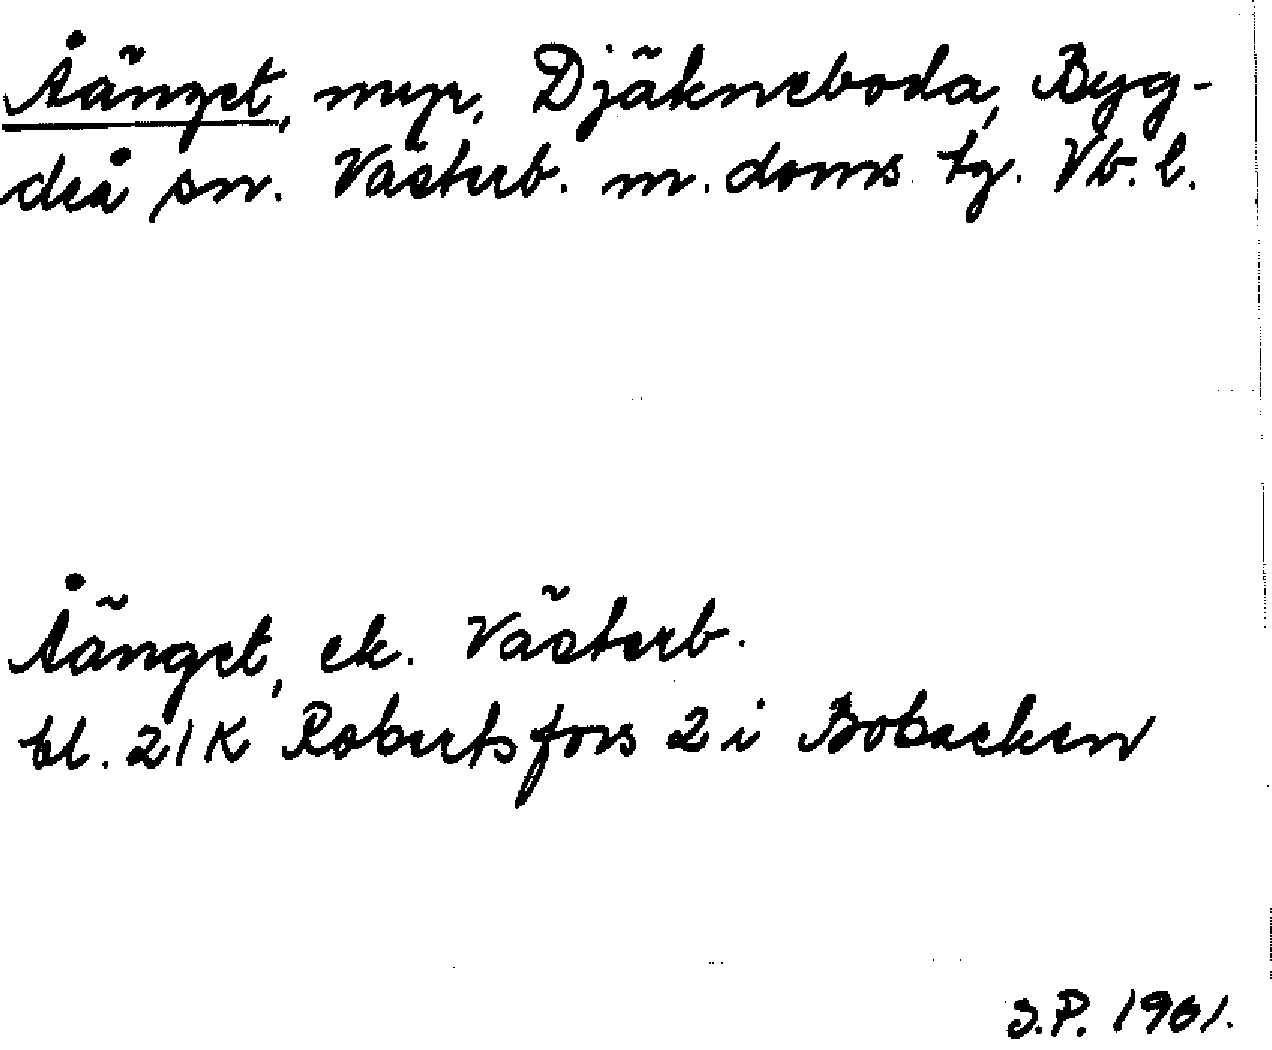 Åänget, myr, Djäkneboda, Byg-
deå sn. Västerb. m. doms. tg. Vb. l.
Åänget, ek. Västerb.
bl. 21K Robertsfors 2 i Bobacken
S.P. 1961.